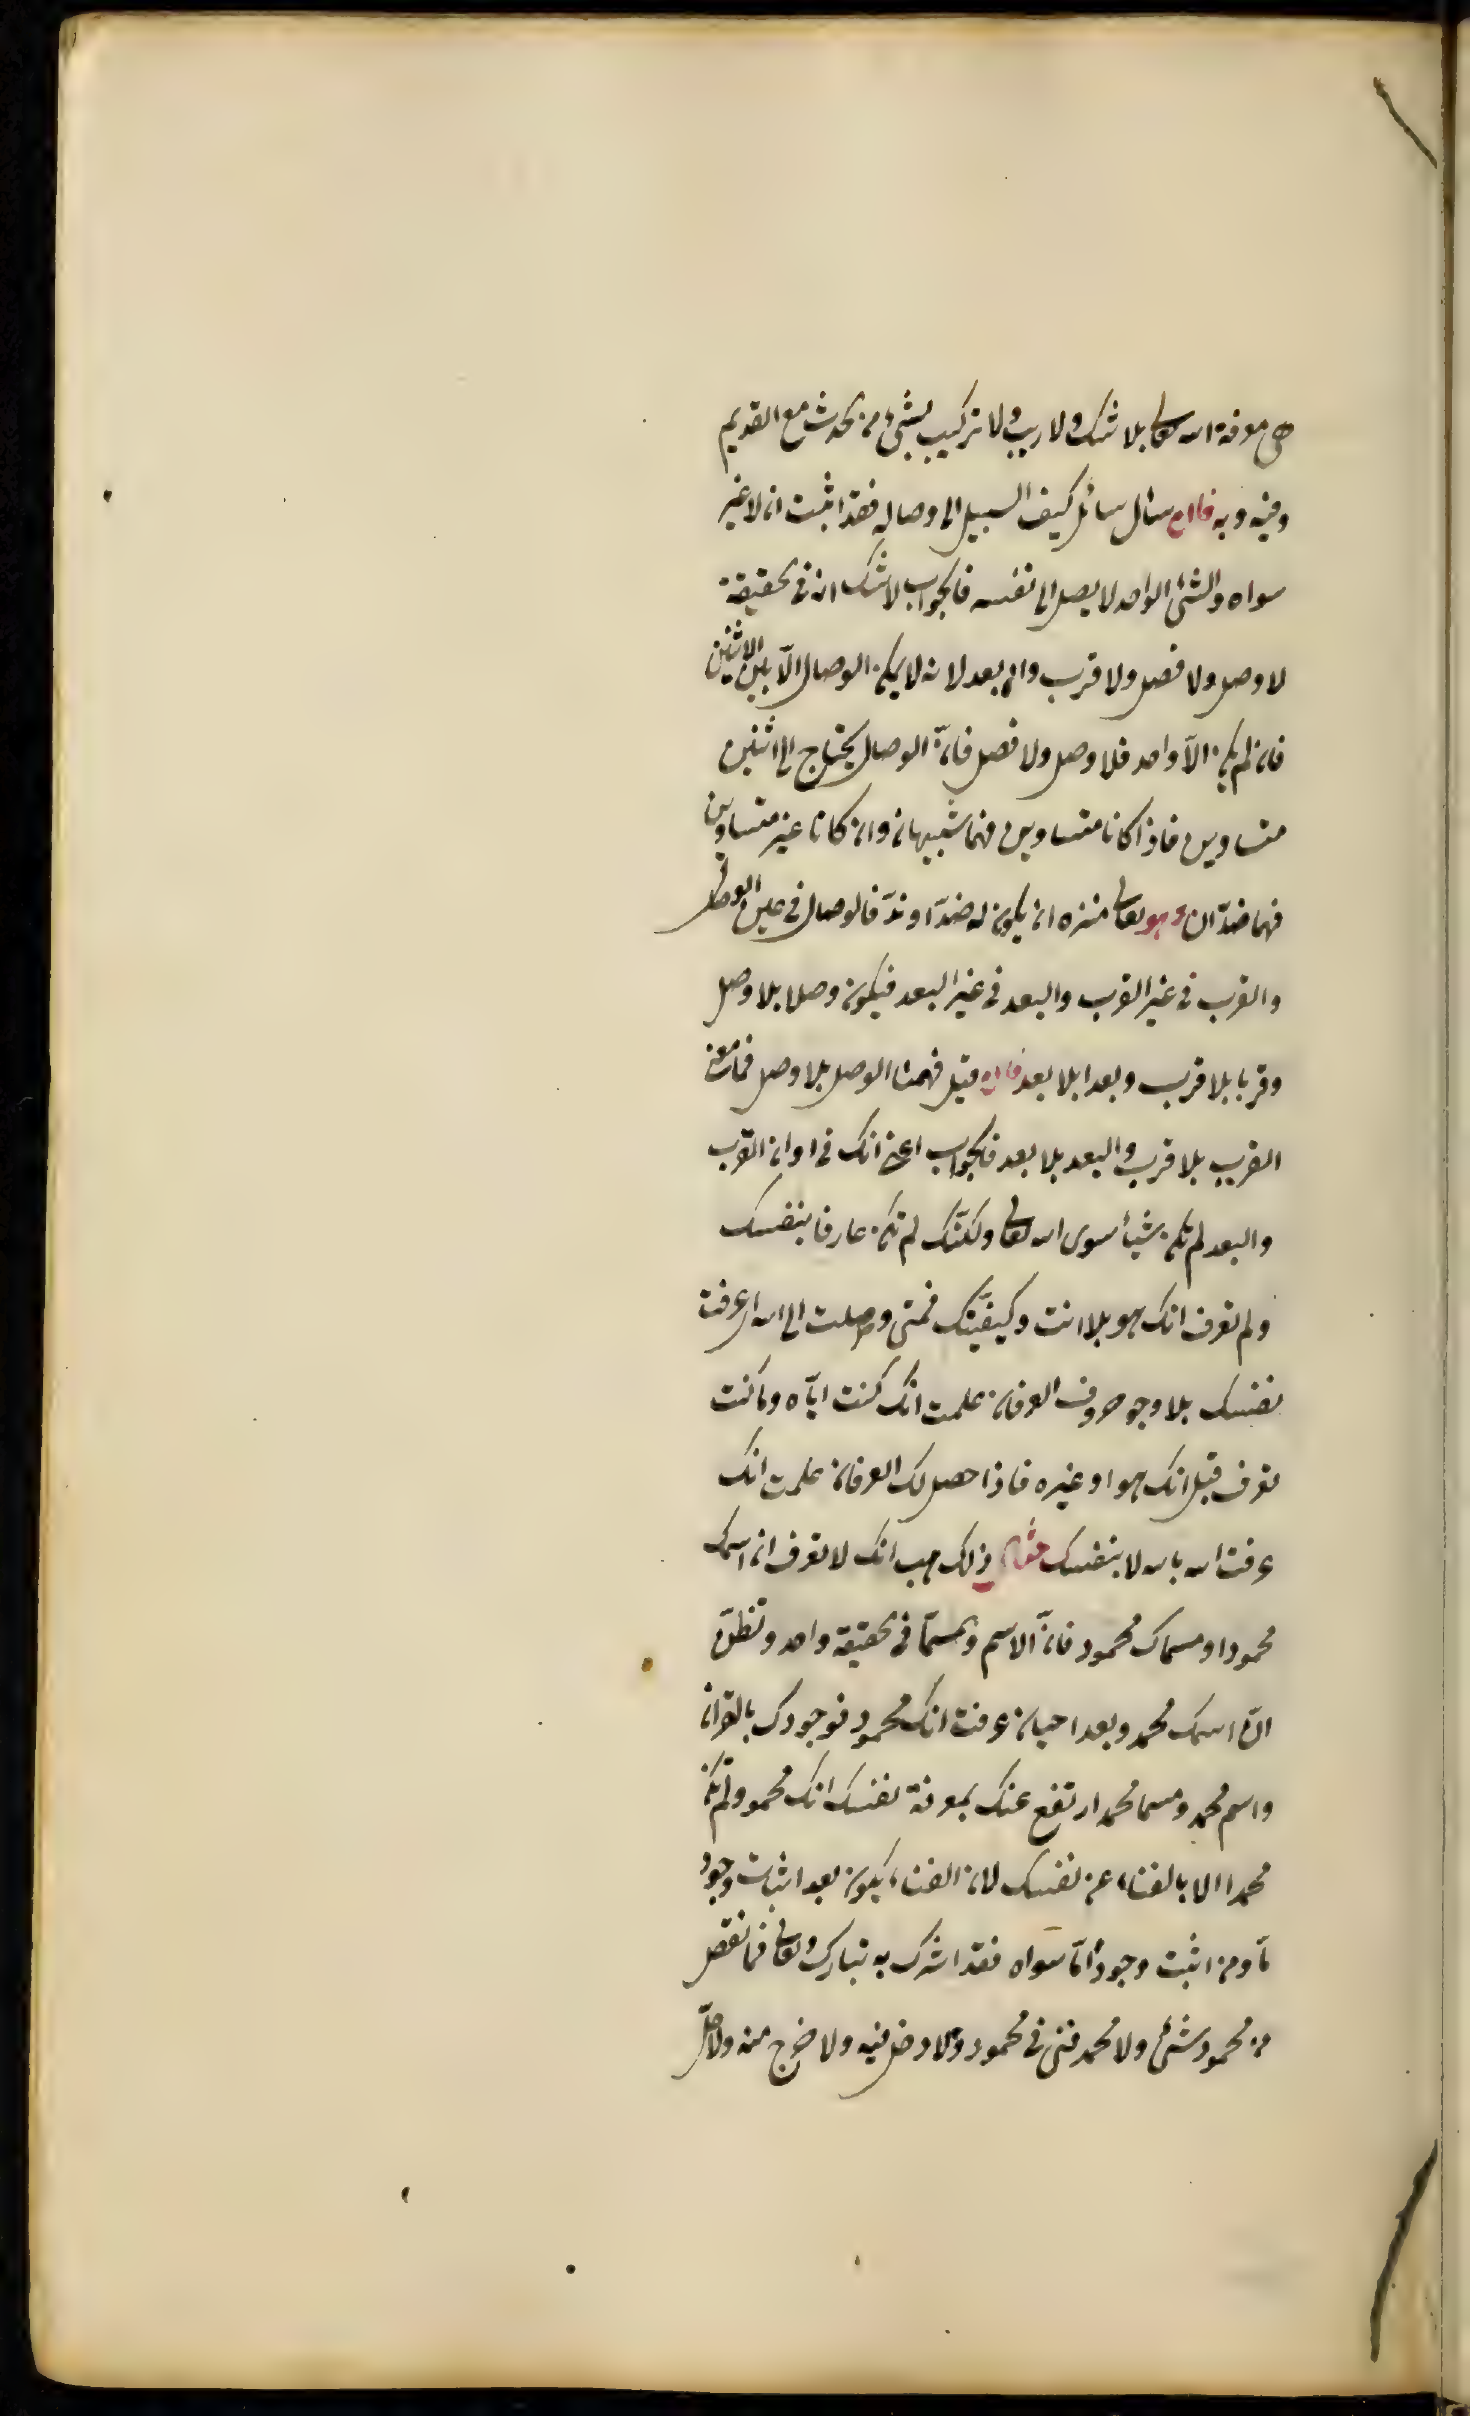 هى معرفة الله تعالى بلا شك ولا ريب ولا تركيب بشئ من الحدث مع القديم
وفيه وبه فان سئال سائل كيف السبيل الى وصاله فقد اثبت ان لا غير
سواه والشئ الواحد لا يصل الى نفسه فالجواب لا شك ان فى الحقيقة
لا وصل ولا فصل ولا قرب ولا بعد لانه لا يمكن الوصال الّا بين الاثنين
فان لم يكن الّا واحد فلا وصل ولا فصل فانّ الوصال يحتاج الى اثنين
متساويين فاذا كانا متساويين فهما شبيهان وان كانا غير متساويين
فهما ضدّان وهو تعالى منزه ان يكون له ضدّا او ندّ فالوصال فى عين الوصال
والقرب فى غير القرب والبعد فى غير البعد فيكون وصلا بلا وصل
وقربا بلا قرب وبعدا بلا بعد فان قيل فهمنا الوصل بلا وصل فما معنى
القرب بلا قرب والبعد بلا بعد فالجواب اعنى انك فى اوان القرب
والبعد لم تكن شيأ سوى الله تعالى ولكنّك لم تكن عارفا بنفسك
ولم تعرف انك هو بلا انت وكيفيّتك فمتى وصلت الى الله اى عرفت
نفسك بلا وجود حروف العرفان علمت انك كنت ايّاه وما كنت
تعرف قبل انك هو او غيره فاذا حصل لك العرفان علمت انك
عرفت الله بالله لا بنفسك مثال ذلك هب انك لا تعرف ان اسمك
محمودا ومسماك محمود فانّ الاسم والمسمّا فى الحقيقة واحد وتظنّ
انّ اسمك محمد وبعد احيان عرفت انك محمود فوجودك بالقران
واسم محمد ومسما محمد ارتفع عنك بمعرفة نفسك انك محمود ولم تكن
محمدا الا بالفناء عن نفسك لان الفناء يكون بعد اثبات وجود
مّا ومن اثبت وجودا مّا سواه فقد اشرك به تبارك وتعالى فما نقص
من محمود شئ ولا محمد فنى فى محمود ولا دخل فيه ولا خرج منه ولا حلّ